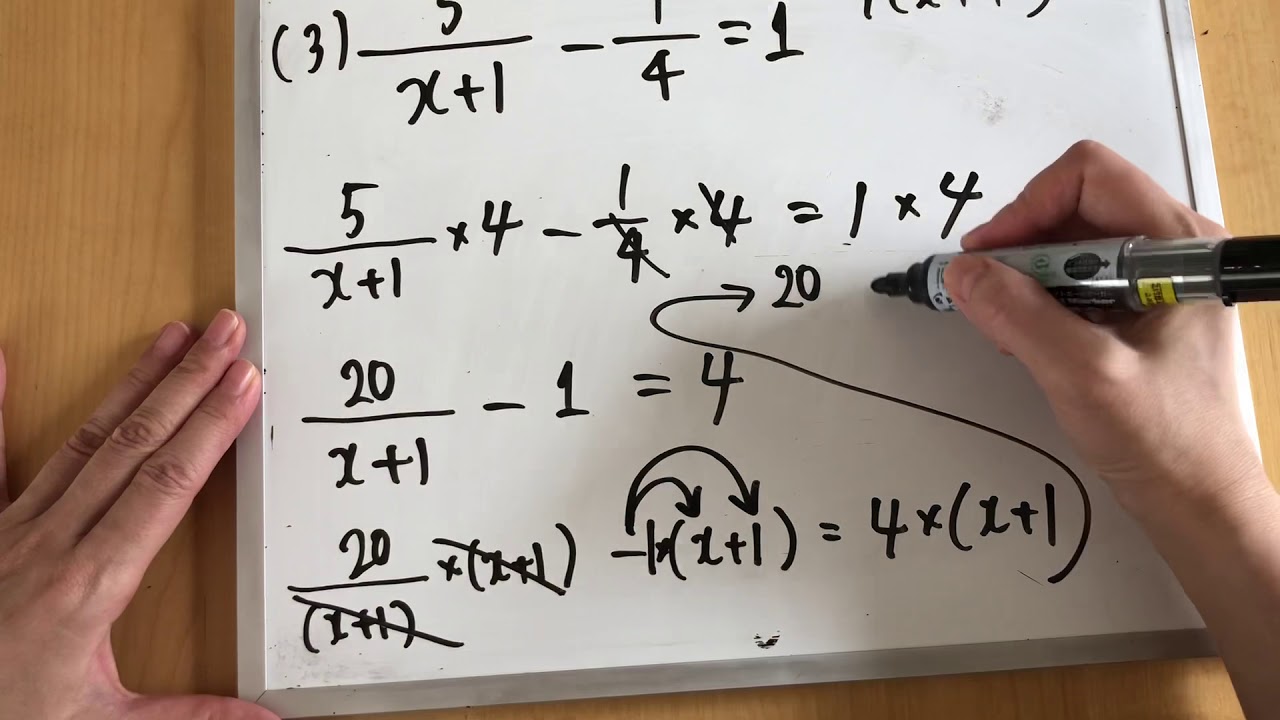 (3) 5/(x+1) - 1/4 = 1
5/(x+1) × 4 - 1/4 × 4 = 1 × 4
→ 20
20/(x+1) - 1 = 4
20/(x+1) × (x+1) -1×(x+1) = 4×(x+1)